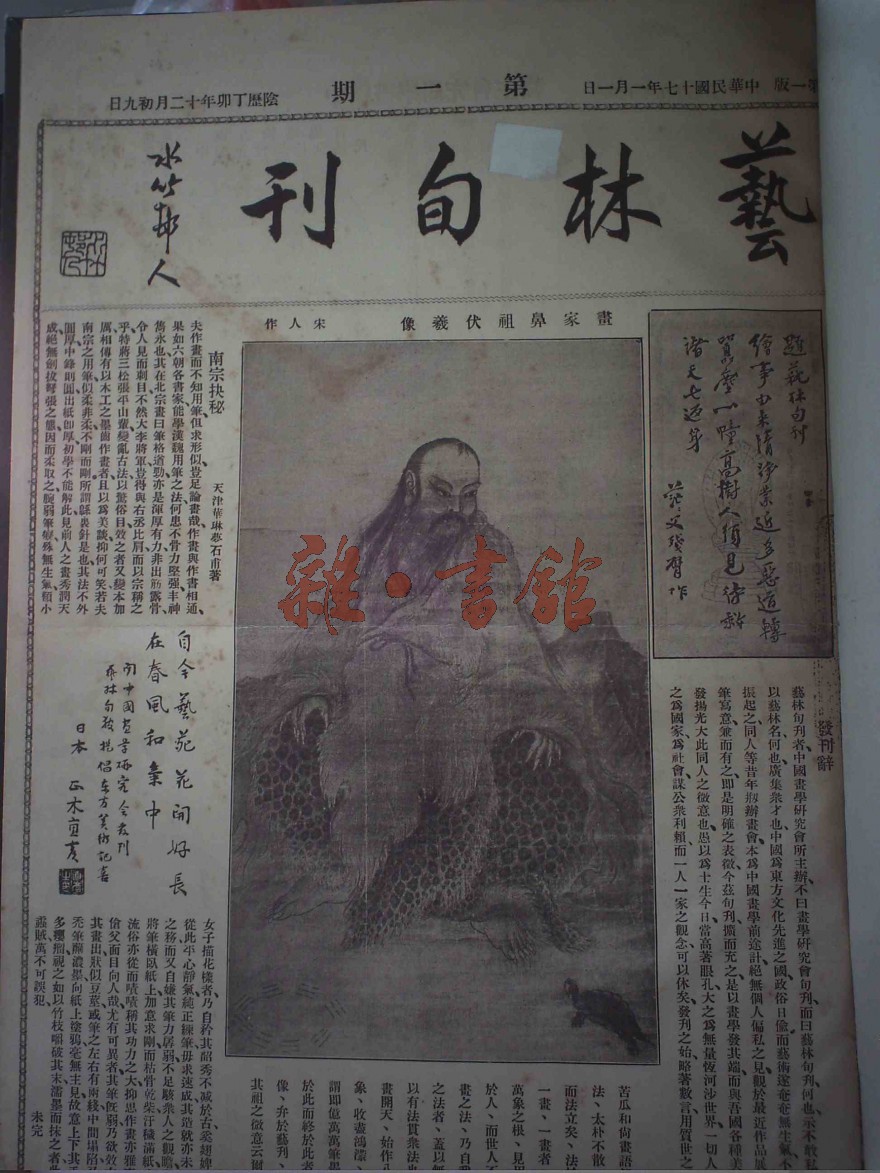 第一版 中華民國十七年一月一日
第一期
陰歷丁卯年十二月初九日
藝林旬刊
水竹邨人
題藝林旬刊
繪事由來清淨業近多惡道轉
高樹人須見
諸天七返身
畫家鼻祖伏羲像 宋人作
發刊辭
藝林旬刊者、中國畫學研究會所主辦、不曰畫學研究會旬刊、而曰藝林旬刊、何也、示不敢
以藝林名何也、廣集衆才也、中國爲東方文化先進之國、政俗日偷、而藝術遂奄奄無生氣、
振起之、同人等昔年剏辦畫會、本爲中國畫學前途計、絕無個人偏私之見、觀於最近作品
筆寫意、兼而有之、即是明確之表徵、今茲旬刊、擴而充之、是以畫學發其端、而與吾國各種
發揚光大、此同人之微意也、愚以爲士生今日、當高著眼孔、大之爲無量恆河沙世界、一切人
之爲國家爲社會、謀公衆利賴、而一人一家之觀念、可以休矣、發刊之始、略著數言、用質世之
南宗抉秘
天津華琳夢石甫著
夫作畫而不知用筆、但求形似、豈足論畫哉、作畫與作書相通、
果如六朝各書家、能學漢魏用筆之法、何患不骨力堅强、丰神
雋永也、其在北宗、畫曰筆格遒勁、亦是渾厚有力、非出筋露骨、
令人見而刺目、不然大李將軍豈得與右丞比肩、而以宗稱之
乎、特蔣三松張平山輩、變亂古法、以驚俗目、效之者又變本加
厲、相傳有以木工之墨齒作畫者、且以爲美談、抑何可笑、若夫
南宗之用筆、似柔非柔、不剛而剛、所謂緜裏針是也、其法不外
圓厚、中鋒則圓、出紙即厚、初學不能解此、見前人之畫、秀潤天
成、絕無劍拔弩張之態、因而柔取之、腕弱筆癡、殊無生氣、頗小
自今藝苑花開好長
在春風和氣中
日本 正木直彥
女子描花樣者、乃自矜其韶秀不減於古、爰翅婢
從此平心靜氣、純正練筆、毋求速成、其造就亦未
之務、而又自嫌其筆力孱弱、不足駭衆人之觀瞻
將筆橫臥紙上、加意求剛、而枯骨乾柴、汙穢滿紙
流俗亦從而嘖嘖、稱其功力之大、抑思作畫亦雅
傖父面目向人哉、尤有可異者、其筆旣弱、乃欲效
其畫出狀似豆莢、或筆之左右有兩綫、中間塌陷
禿筆蘸濃墨、向紙上塗鴉、毫無主見、故意上下其手
多癭瘤、視之如以竹枝嚼破其末、濡墨而抹之者
蟊賊、萬不可誤犯、
未完
苦瓜和尙畫語
法、太朴不散
而法立矣、法
一畫、一畫者
萬象之根、見用
於人、而世人不
畫之法、乃自我
之法者、蓋以無
以有法貫衆法也
畫開天、始作八
象、收盡鴻濛、
謂即億萬萬筆墨
於此而終於此者
像、弁於藝刊、
其祖之微意云爾
雜·書館